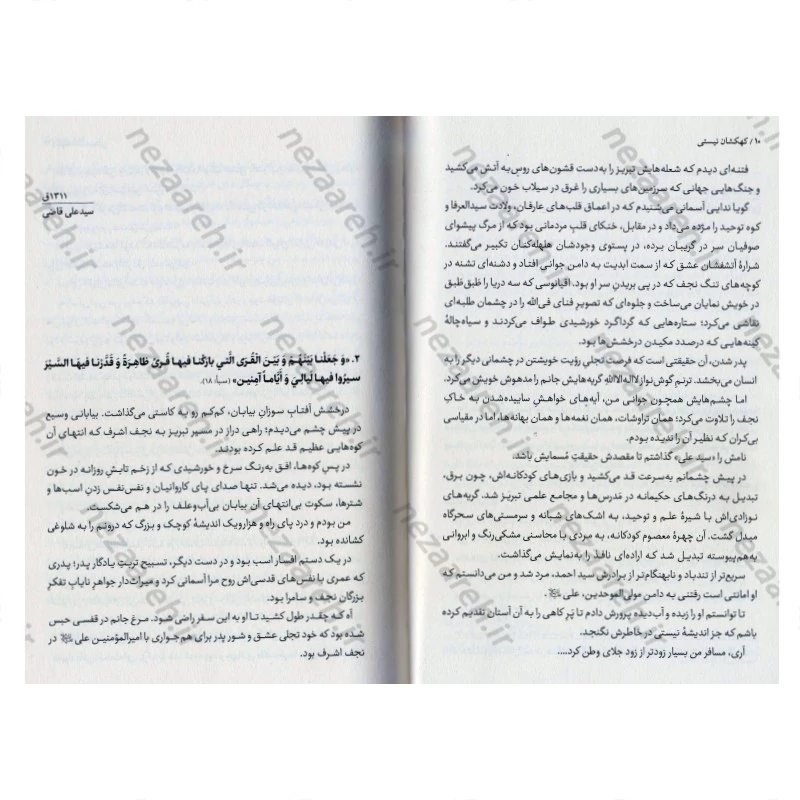 ۱۰ / کهکشان نیستی
فتنه‌ای دیدم که شعله‌هایش تبریز را به‌دست قشون‌های روس به آتش می‌کشید
و جنگ‌هایی جهانی که سرزمین‌های بسیاری را غرق در سیلاب خون می‌کرد.
گویا ندایی آسمانی می‌شنیدم که در اعماق قلب‌های عارفان، ولادت سیدالعرفا و
کوه توحید را مژده می‌داد و در مقابل، خنکای قلب مردمانی بود که از مرگ پیشوای
صوفیان سر در گریبان برده، در پستوی وجودشان هلهله‌کنان تکبیر می‌گفتند.
شرارهٔ آتشفشان عشق که از سمت ابدیت به دامن جوانی افتاد و دشنه‌ای تشنه در
کوچه‌های تنگ نجف که در پی بریدن سر او بود. اقیانوسی که سه دریا را طبق‌طبق
در خویش نمایان می‌ساخت و جلوه‌ای که تصویر فنای فی‌الله را در چشمان طلبه‌ای
نقاشی می‌کرد؛ ستاره‌هایی که گرداگرد خورشیدی طواف می‌کردند و سیاه‌چالهٔ
کینه‌هایی که درصدد مکیدن درخشش‌ها بود.
پدر شدن، آن حقیقتی است که فرصت تجلی رؤیت خویشتن در چشمانی دیگر را به
انسان می‌بخشد. ترنم گوش‌نواز لااله‌الاالله گریه‌هایش جانم را مدهوش خویش می‌کرد.
اما چشم‌هایش همچون جوانی من، آیه‌های خواهش ساییده‌شدن به خاک
نجف را تلاوت می‌کرد؛ همان تراوشات، همان نغمه‌ها و همان بهانه‌ها، اما در مقیاسی
بی‌کران که نظیر آن را ندیده بودم.
نامش را «سید علی» گذاشتم تا مقصدش حقیقتِ مُسمایش باشد.
در پیش چشمانم به‌سرعت قد می‌کشید و بازی‌های کودکانه‌اش، چون برق،
تبدیل به درنگ‌های حکیمانه در مَدرَس‌ها و مجامع علمی تبریز شد. گریه‌های
نوزادی‌اش با شیرهٔ علم و توحید، به اشک‌های شبانه و سرمستی‌های سحرگاه
مبدل گشت. آن چهرهٔ معصوم کودکانه، به مردی با محاسنی مشکی‌رنگ و ابروانی
به‌هم‌پیوسته تبدیل شد که اراده‌ای نافذ را به‌نمایش می‌گذاشت.
سریع‌تر از تندباد و نابهنگام‌تر از برادرش سید احمد، مرد شد و من می‌دانستم که
او امانتی است رفتنی به دامن مولی‌الموحدین، علی.
تا توانستم او را زبده و آب‌دیده پرورش دادم تا پَر کاهی را به آن آستان تقدیم کرده
باشم که جز اندیشهٔ نیستی در خاطرش نگنجد.
آری، مسافر من بسیار زودتر از زود جلای وطن کرد....
۱۳۱۱ق
سیدعلی قاضی
۲. «وَ جَعَلْنا بَیْنَهُمْ وَ بَیْنَ الْقُرَى الَّتي بارَكْنا فيها قُرىً ظاهِرَةً وَ قَدَّرْنا فيهَا السَّيْرَ
سيرُوا فيها لَيالِيَ وَ أَيَّاماً آمِنينَ» (سبأ: ۱۸).
درخشش آفتاب سوزان بیابان، کم‌کم رو به کاستی می‌گذاشت. بیابانی وسیع
در پیش چشم می‌دیدم؛ راهی دراز در مسیر تبریز به نجف اشرف که انتهای آن
کوه‌هایی عظیم قد علم کرده بودند.
در پسِ کوه‌ها، افق به‌رنگ سرخ و خورشیدی که از زخم تابش روزانه در خون
نشسته بود، دیده می‌شد. تنها صدای پای کاروانیان و نفس‌نفس زدنِ اسب‌ها و
شترها، سکوت بی‌انتهای آن بیابان بی‌آب‌وعلف را در هم می‌شکست.
من بودم و درد پای راه و هزارویک اندیشهٔ کوچک و بزرگ که درونم را به شلوغی
کشانده بود.
در یک دستم افسار اسب بود و در دست دیگر، تسبیح تربتِ یادگار پدر؛ پدری
که عمری با نفس‌های قدسی‌اش روح مرا آسمانی کرد و میراث‌دار جواهر نایاب تفکر
بزرگان نجف و سامرا بود.
آه که چقدر طول کشید تا او به این سفر راضی شود. مرغ جانم در قفسی حبس
شده بود که خود تجلی عشق و شور پدر برای هم‌جواری با امیرالمؤمنین علی در
نجف اشرف بود.
nezaareh.ir
nezaareh.ir
nezaareh.ir
nezaareh.ir
nezaareh.ir
nezaareh.ir
nezaareh.ir
nezaareh.ir
nezaareh.ir